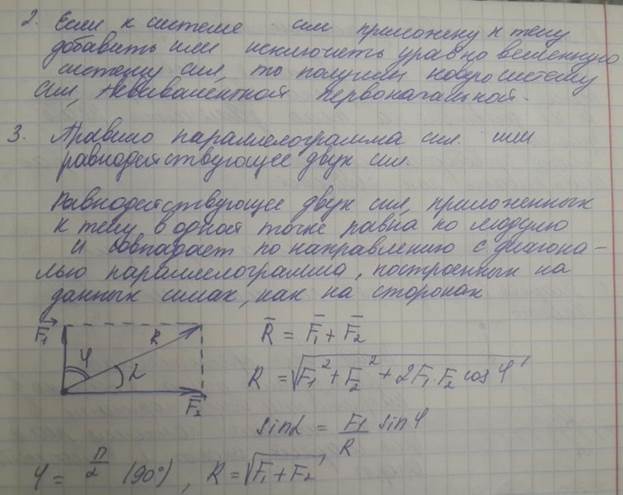 2. Если к системе сил приложену к телу
добавить или исключить уравновешенную
систему сил, то получим новую систему
сил, эквивалентной первоначальной.
3. Правило параллелограмма сил или
равнодействующее двух сил.
Равнодействующее двух сил, приложенных
к телу в одной точке равна по модулю
и совпадает по направлению с диагона-
лью параллелограмма, построенных на
данных силах, как на сторонах
F̅₁ φ R α F̅₂
R̅ = F̅₁ + F̅₂
R = √(F₁² + F₂² + 2F₁·F₂ cos φ)
sin α = F₁/R sin φ
φ = π/2 (90°), R = √(F₁ + F₂)